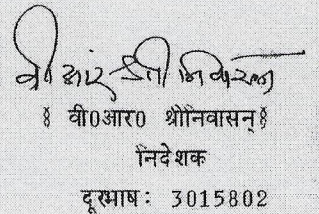 वी आर श्रीनिवासन
( वी0आर0 श्रीनिवासन् )
निदेशक
दूरभाष: 3015802